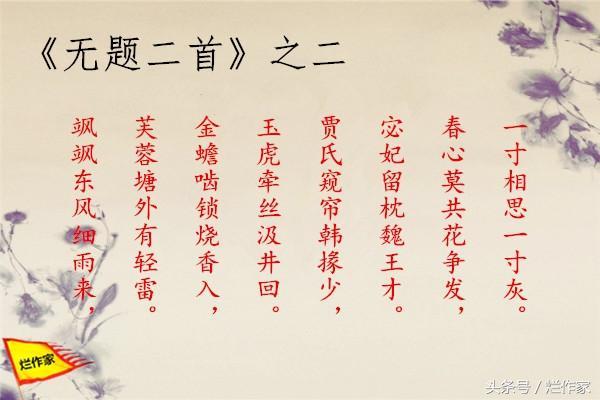 《无题二首》之二
飒飒东风细雨来，
芙蓉塘外有轻雷。
金蟾啮锁烧香入，
玉虎牵丝汲井回。
贾氏窥帘韩掾少，
宓妃留枕魏王才。
春心莫共花争发，
一寸相思一寸灰。
烂作家
头条号 / 烂作家